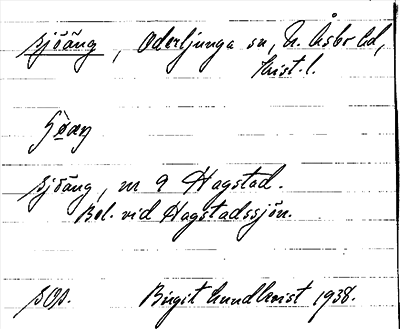 sjöäng, Oderljunga sn, N. Åsbo hd,
Krist. l.
sjöäng, m 9 Hagstad.
Bel. vid Hagstadssjön.
sOp. Birgit Lundkvist 1938.